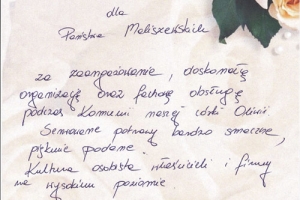 dla
Państwa Maliszewskich
za zaangażowanie, doskonałą
organizację oraz fachową obsługę
podczas Komunii naszej córki Oliwii
Serwowane potrawy bardzo smaczne,
pięknie podane.
Kultura osobista właścicieli i firmy
na wysokim poziomie